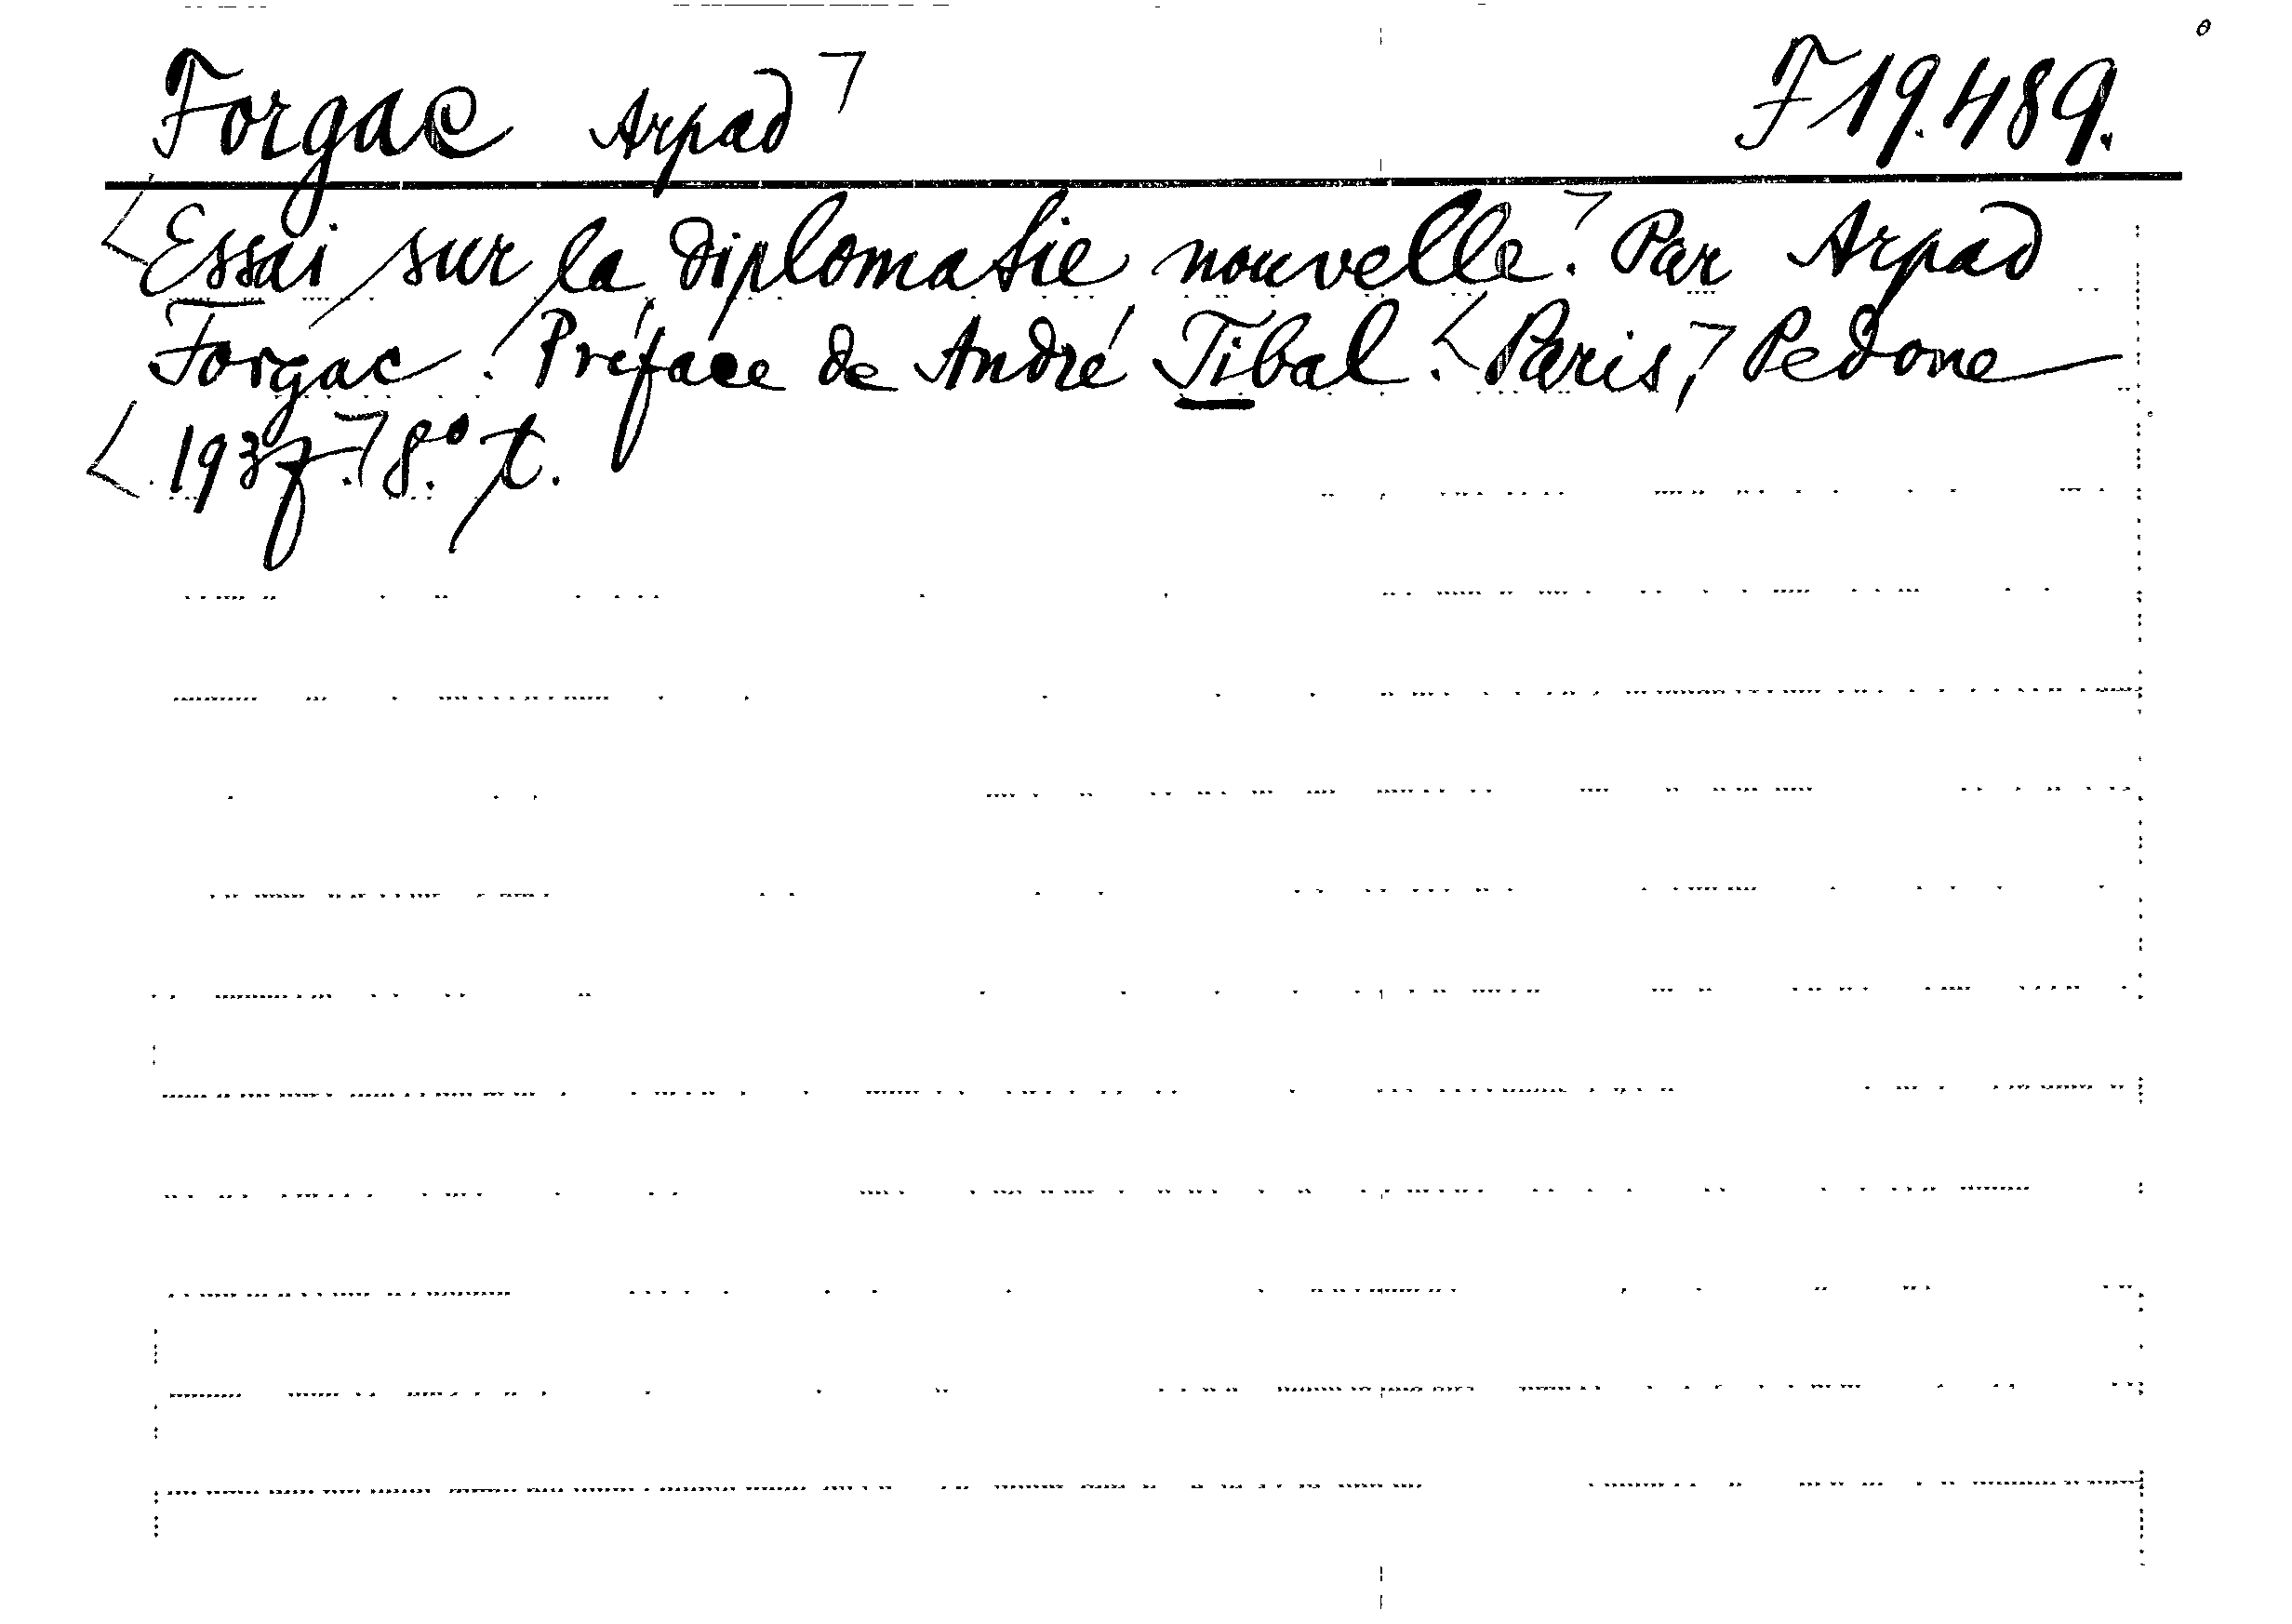 Forgac Arpad F 19.489.
Essai sur la diplomatie nouvelle. Par Arpad
Forgac. Préface de André Tibal. Paris, Pedone
1937. 8.° t.